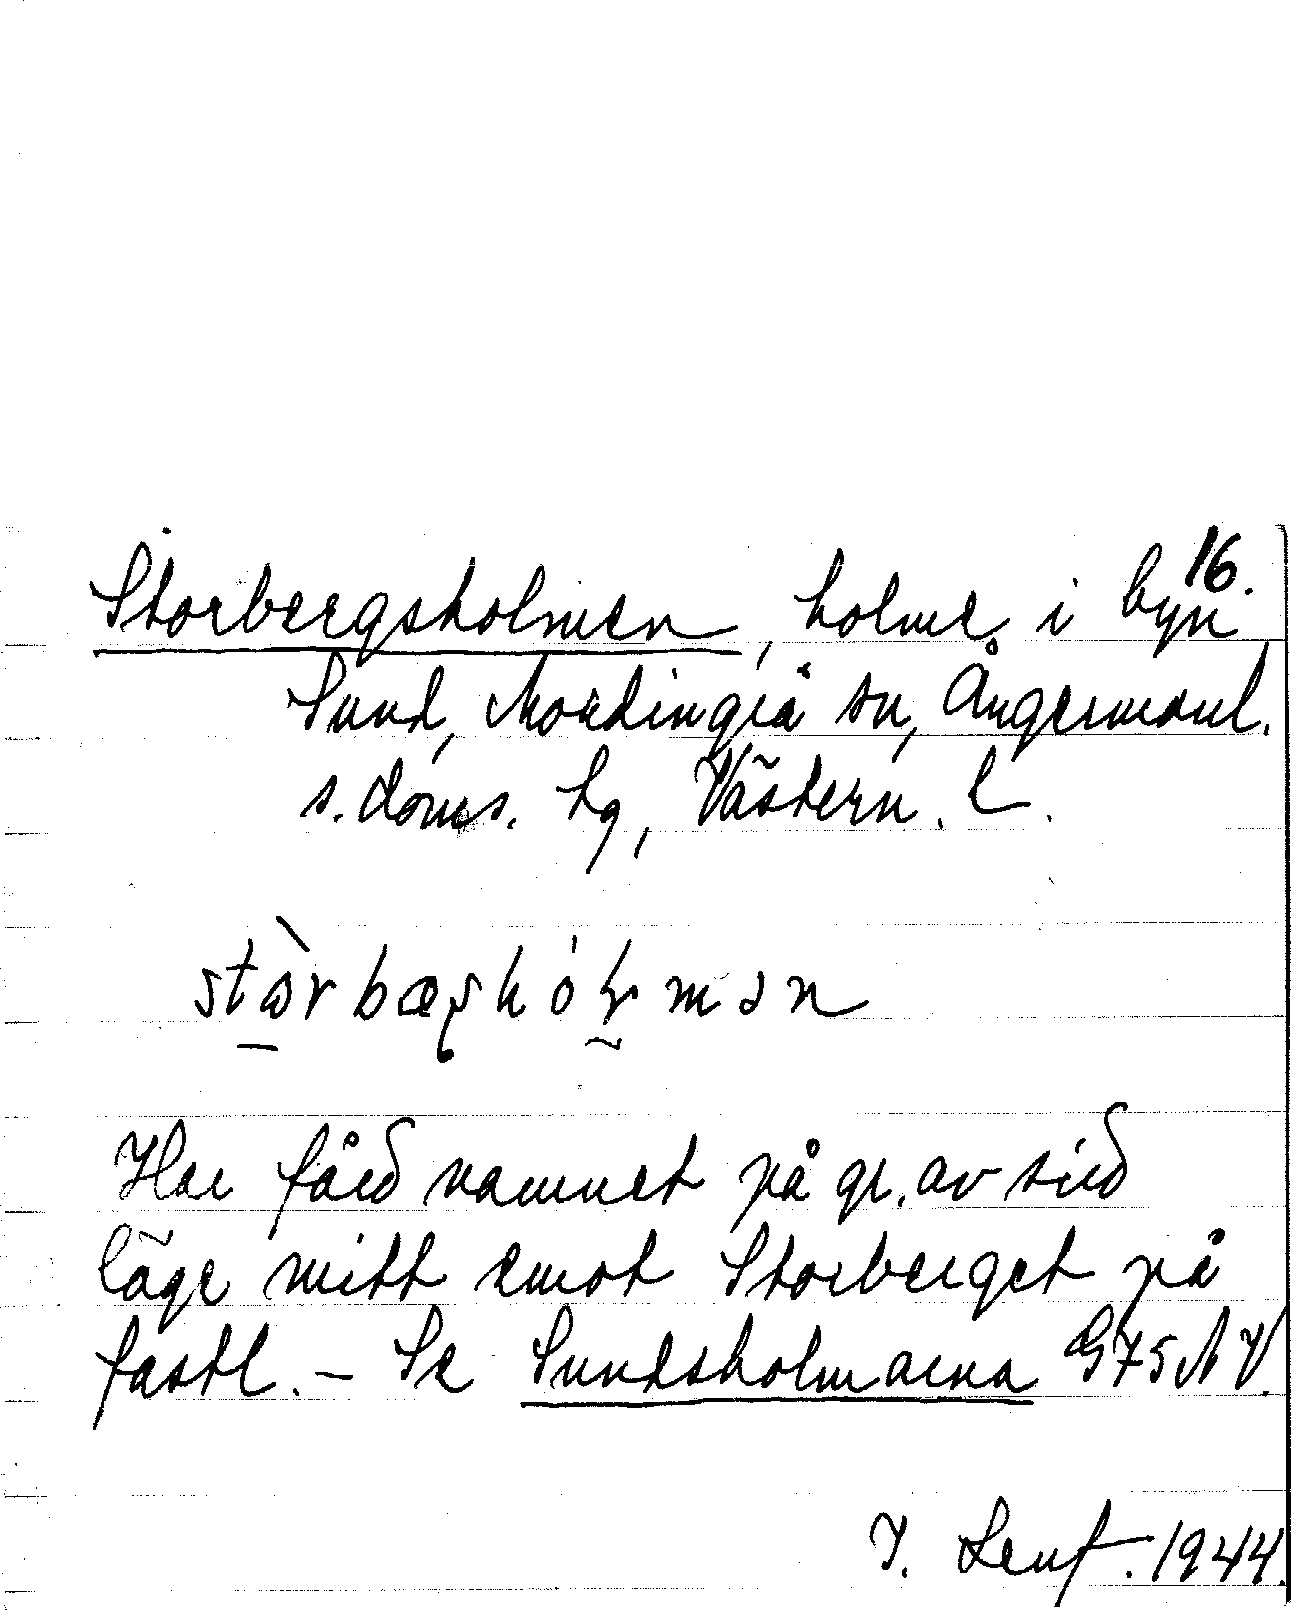 16.
Storbergsholmen, holme i byn
Sund, Nordingrå sn, Ångermanl.
s. doms. hg, Västern. L.
stòrbærshóļmən
Har fått namnet på gr. av sitt
läge mitt emot Storberget på
fastl. – Se Sundsholmarna G75NV.